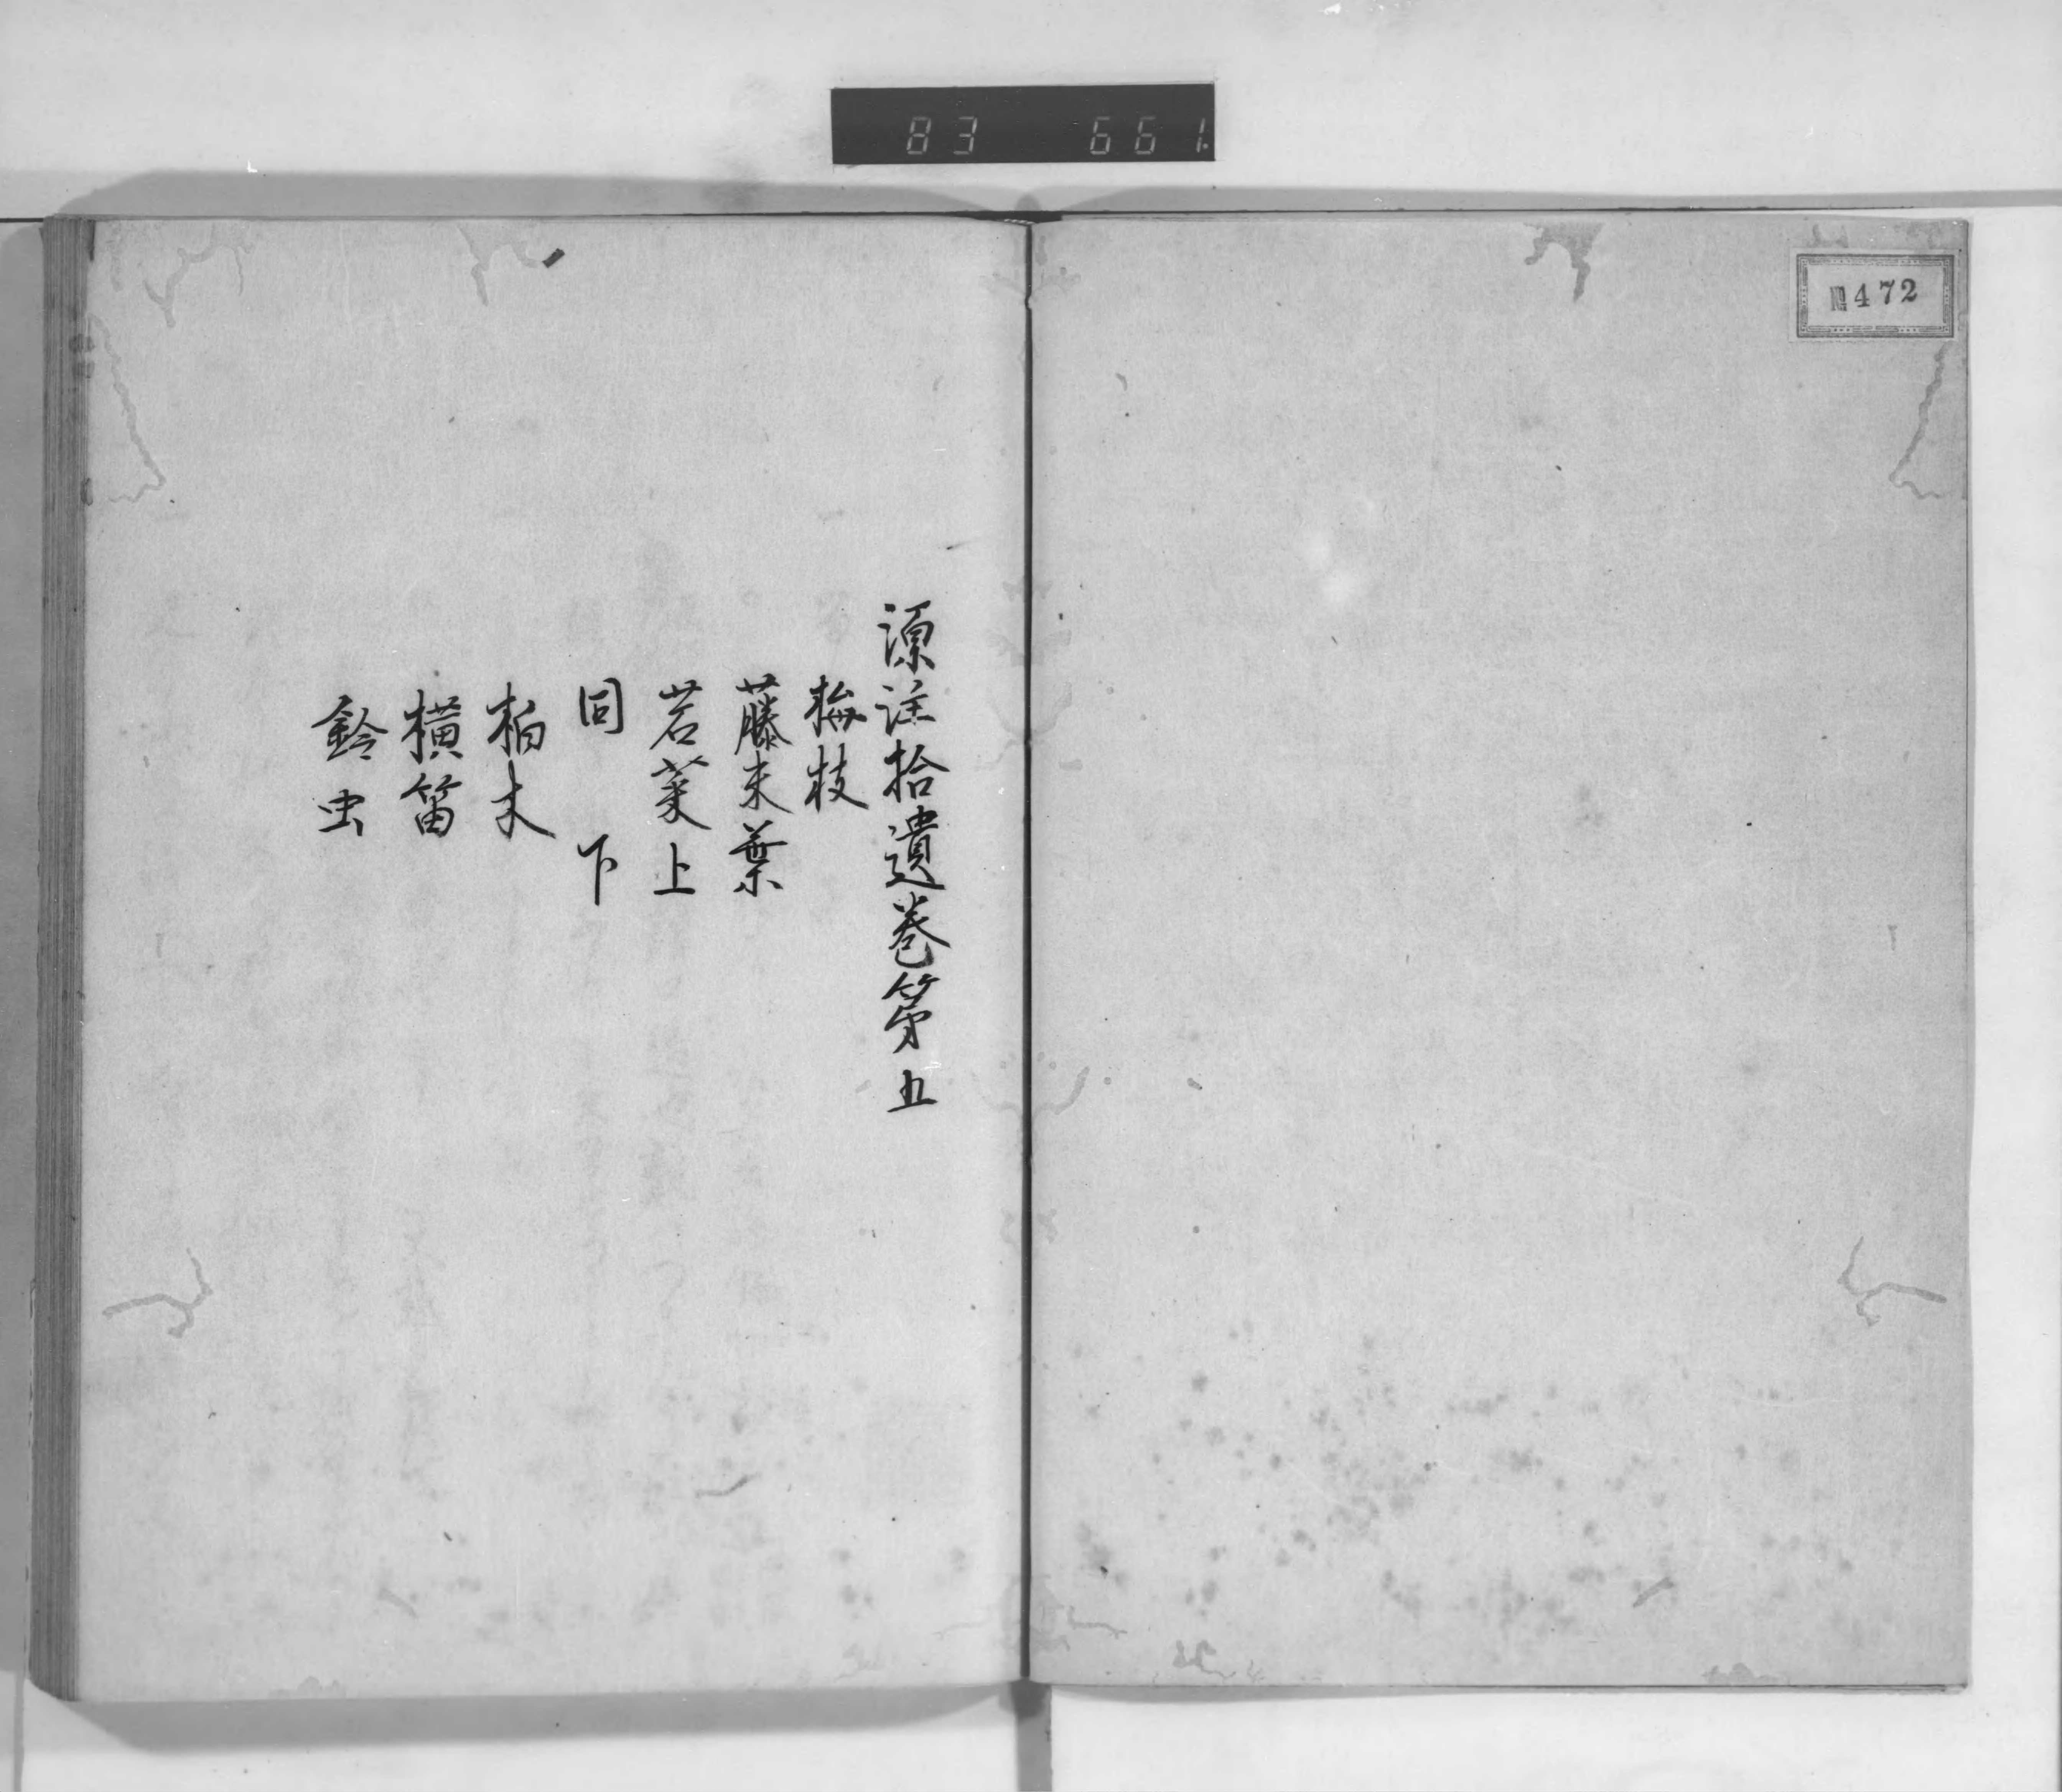 83 661.
№472
源注拾遺巻第五
梅枝
藤末葉
若菜上
同 下
柏木
横笛
鈴虫